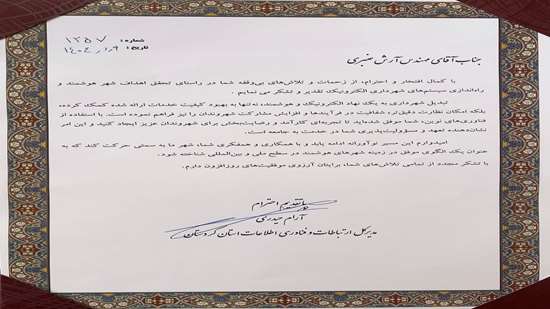 شماره: ۱۲۵۷
تاریخ: ۱۴۰۴
جناب آقای مهندس آرش عنبری
با کمال افتخار و احترام، از زحمات و تلاش‌های بی‌وقفه شما در راستای تحقق اهداف شهر هوشمند و
راه‌اندازی سیستم‌های شهرداری الکترونیک تقدیر و تشکر می نمایم .
تبدیل شهرداری به یک نهاد الکترونیک و هوشمند، نه‌تنها به بهبود کیفیت خدمات ارائه شده کمک کرده،
بلکه امکان نظارت دقیق‌تر، شفافیت در فرآیندها و افزایش مشارکت شهروندان را نیز فراهم نموده است. با استفاده از
فناوری‌های نوین، شما موفق شده‌اید تا تجربه‌ای کارآمد و رضایت‌بخش برای شهروندان عزیز ایجاد کنید و این امر
نشان‌دهنده تعهد و مسؤولیت‌پذیری شما در خدمت به جامعه است.
امیدوارم این مسیر نوآورانه ادامه یابد و با همکاری و همفکری شما، شهر ما به سمتی حرکت کند که به
عنوان یک الگوی موفق در زمینه شهرهای هوشمند در سطح ملی و بین‌المللی شناخته شود.
با تشکر مجدد از تمامی تلاش‌های شما، برایتان آرزوی موفقیت‌های روزافزون دارم.
با تقدیم احترام
آرام حیدری
مدیرکل ارتباطات و فناوری اطلاعات استان کردستان